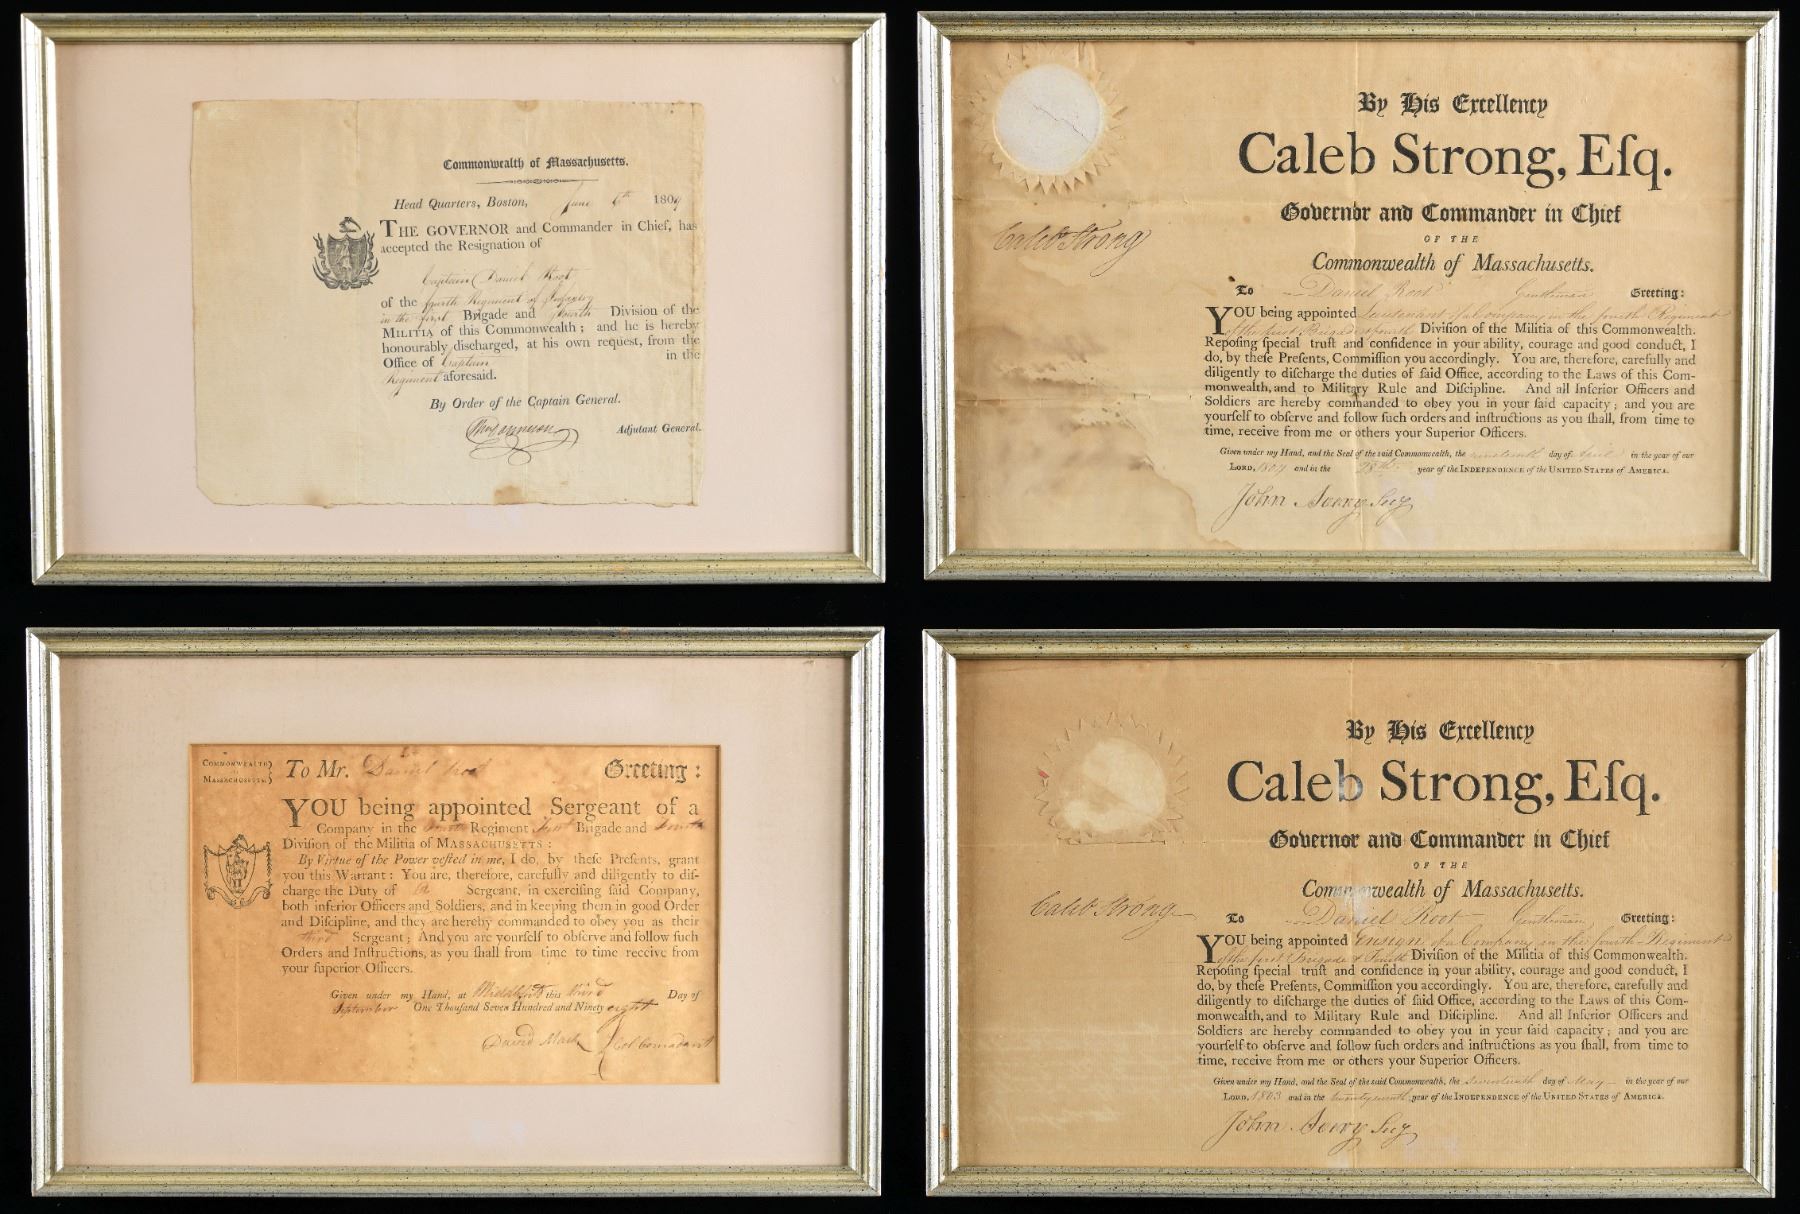 Commonwealth of Massachusetts.
Head Quarters, Boston, June 6th 1809
THE GOVERNOR and Commander in Chief, has
accepted the Resignation of
Captain Daniel Root
of the fourth Regiment of Infantry
in the first Brigade and fourth Division of the
MILITIA of this Commonwealth; and he is hereby
honourably discharged, at his own request, from the
Office of Captain in the
Regiment aforesaid.
By Order of the Captain General.
Adjutant General.
By His Excellency
Caleb Strong, Eſq.
Governor and Commander in Chief
OF THE
Commonwealth of Massachusetts.
Caleb Strong
To Daniel Root Gentleman Greeting:
YOU being appointed Lieutenant of a Company in the fourth Regiment
of the first Brigade & fourth Division of the Militia of this Commonwealth.
Repoſing ſpecial truſt and confidence in your ability, courage and good conduct, I
do, by theſe Preſents, Commiſſion you accordingly. You are, therefore, carefully and
diligently to diſcharge the duties of ſaid Office, according to the Laws of this Com-
monwealth, and to Military Rule and Diſcipline. And all Inferior Officers and
Soldiers are hereby commanded to obey you in your ſaid capacity; and you are
yourſelf to obſerve and follow ſuch orders and inſtructions as you ſhall, from time to
time, receive from me or others your Superior Officers.
Given under my Hand, and the Seal of the said Commonwealth, the nineteenth day of April in the year of our
LORD, 1804 and in the 28th year of the INDEPENDENCE of the UNITED STATES of AMERICA.
John Avery Secy
COMMONWEALTH of MASSACHUSETTS.
To Mr. Daniel Root Greeting:
YOU being appointed Sergeant of a
Company in the fourth Regiment first Brigade and fourth
Diviſion of the Militia of MASSACHUSETTS:
By Virtue of the Power veſted in me, I do, by theſe Preſents, grant
you this Warrant: You are, therefore, carefully and diligently to diſ-
charge the Duty of a Sergeant, in exerciſing ſaid Company,
both inferior Officers and Soldiers, and in keeping them in good Order
and Diſcipline, and they are hereby commanded to obey you as their
third Sergeant; And you are yourſelf to obſerve and follow ſuch
Orders and Inſtructions, as you ſhall from time to time receive from
your ſuperior Officers.
Given under my Hand, at Middlefield this third Day of
September One Thouſand Seven Hundred and Ninety eight
David Mack Lt Col Comadant
By His Excellency
Caleb Strong, Eſq.
Governor and Commander in Chief
OF THE
Commonwealth of Massachusetts.
Caleb Strong
To Daniel Root Gentleman Greeting:
YOU being appointed Ensign of a Company in the fourth Regiment
of the first Brigade & Fourth Division of the Militia of this Commonwealth.
Repoſing ſpecial truſt and confidence in your ability, courage and good conduct, I
do, by theſe Preſents, Commiſſion you accordingly. You are, therefore, carefully and
diligently to diſcharge the duties of ſaid Office, according to the Laws of this Com-
monwealth, and to Military Rule and Diſcipline. And all Inferior Officers and
Soldiers are hereby commanded to obey you in your ſaid capacity; and you are
yourſelf to obſerve and follow ſuch orders and inſtructions as you ſhall, from time to
time, receive from me or others your Superior Officers.
Given under my Hand, and the Seal of the said Commonwealth, the seventeenth day of May in the year of our
LORD, 1803 and in the twenty seventh year of the INDEPENDENCE of the UNITED STATES of AMERICA.
John Avery Secy